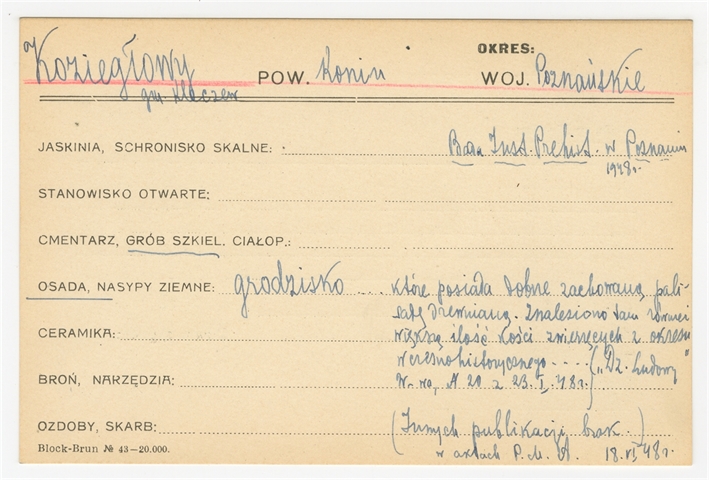 OKRES:
Koziegłowy POW. Konin WOJ. Poznańskie
gm. Kleczew
JASKINIA, SCHRONISKO SKALNE: Inst. Prehist. w Poznaniu
1948 r.
STANOWISKO OTWARTE:
CMENTARZ, GRÓB SZKIEL. CIAŁOP.:
OSADA, NASYPY ZIEMNE: grodzisko ... które posiada dobrze zachowaną pali-
sadę drewnianą. Znalesiono tam również
CERAMIKA: większą ilość kości zwierzęcych z okresu
wczesnohistorycznego .... ("Dz. Ludowy"
BROŃ, NARZĘDZIA: W-wa, N 20 z 23.I.48 r.)
OZDOBY, SKARB: (Innych publikacji brak.)
Block-Brun № 43-20.000. w aktach P.M.A. 18.VI.48 r.